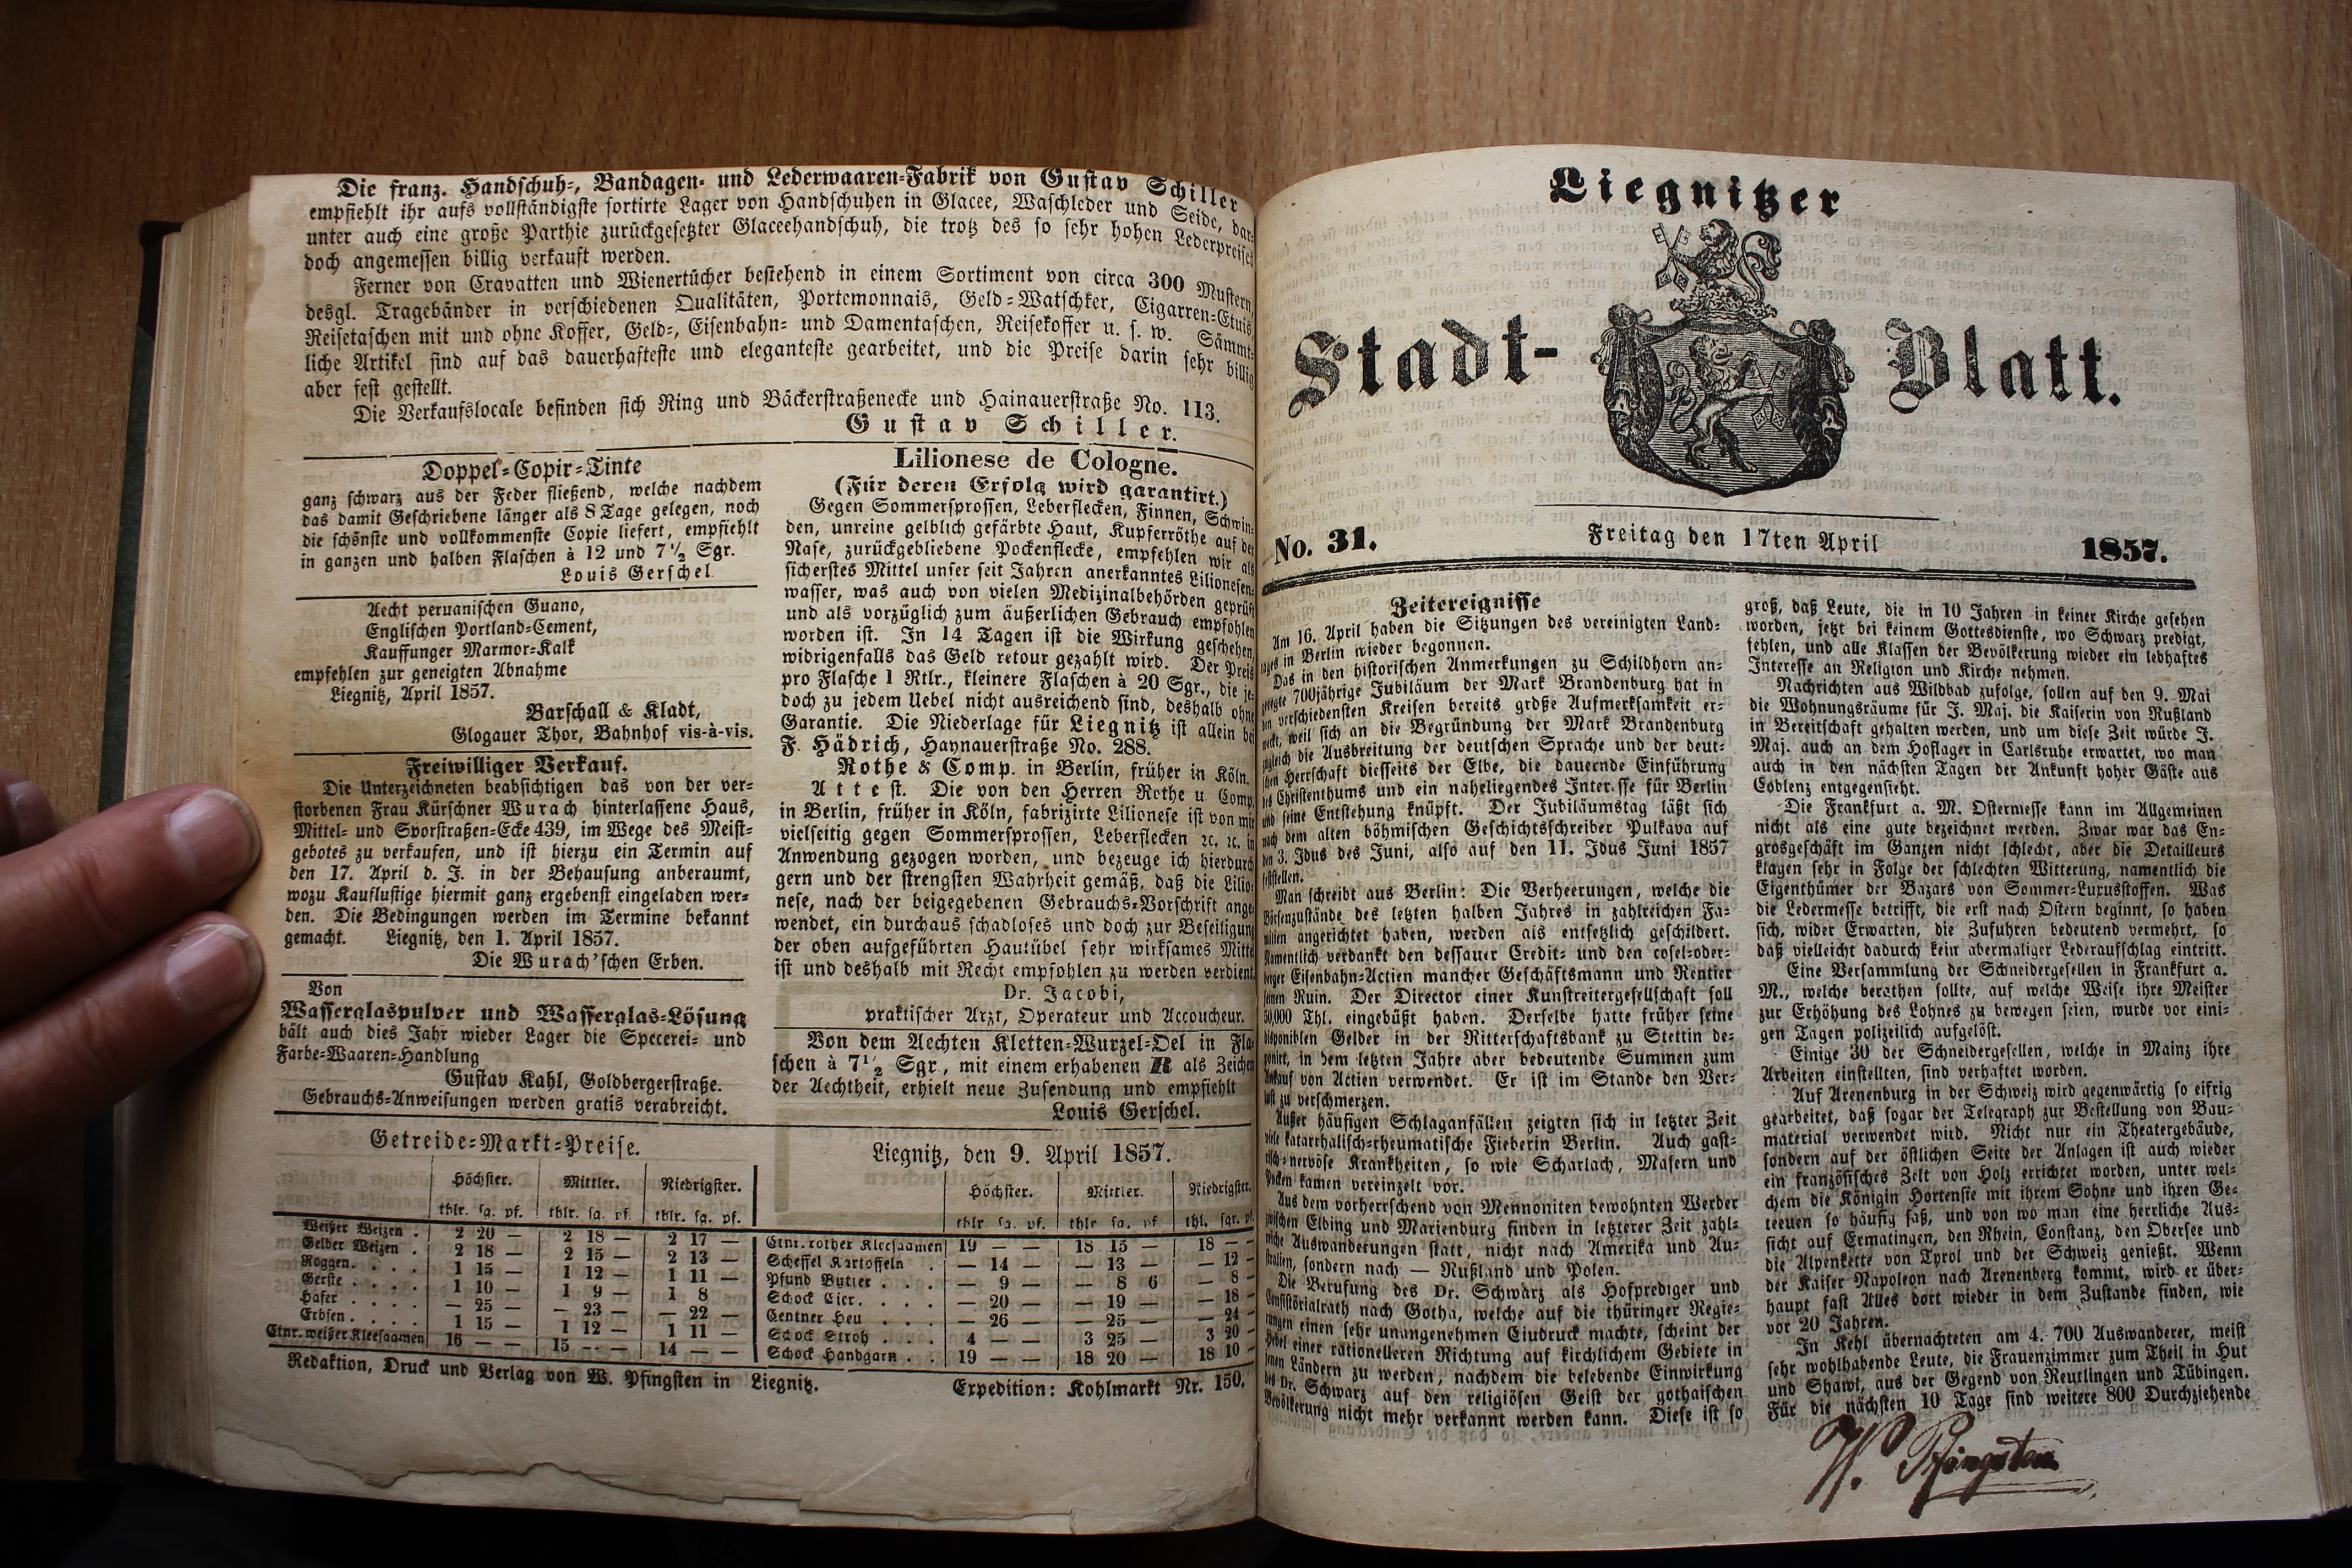 Die franz. Handschuh-, Bandagen- und Lederwaaren-Fabrik von Gustav Schiller
empfiehlt ihr aufs vollständigste sortirte Lager von Handschuhen in Glacee, Waschleder und Seide, dar-
unter auch eine große Parthie zurückgesetzter Glaceehandschuh, die trotz des so sehr hohen Lederpreises
doch angemessen billig verkauft werden.
Ferner von Cravatten und Wienertücher bestehend in einem Sortiment von circa 300 Mustern,
desgl. Tragebänder in verschiedenen Qualitäten, Portemonnais, Geld-Watschker, Cigarren-Etuis
Reisetaschen mit und ohne Koffer, Geld-, Eisenbahn- und Damentaschen, Reisekoffer u. s. w. Sämmt-
liche Artikel sind auf das dauerhafteste und eleganteste gearbeitet, und die Preise darin sehr billig
aber fest gestellt.
Die Verkaufslocale befinden sich Ring und Bäckerstraßenecke und Hainauerstraße No. 113.
Gustav Schiller.
Doppel-Copir-Tinte
ganz schwarz aus der Feder fließend, welche nachdem
das damit Geschriebene länger als 8 Tage gelegen, noch
die schönste und vollkommenste Copie liefert, empfiehlt
in ganzen und halben Flaschen à 12 und 7½ Sgr.
Louis Gerschel
Aecht peruanischen Guano,
Englischen Portland-Cement,
Kauffunger Marmor-Kalk
empfehlen zur geneigten Abnahme
Liegnitz, April 1857.
Barschall & Kladt,
Glogauer Thor, Bahnhof vis-à-vis.
Freiwilliger Verkauf.
Die Unterzeichneten beabsichtigen das von der ver-
storbenen Frau Kürschner Wurach hinterlassene Haus,
Mittel- und Sporstraßen-Ecke 439, im Wege des Meist-
gebotes zu verkaufen, und ist hierzu ein Termin auf
den 17. April d. J. in der Behausung anberaumt,
wozu Kauflustige hiermit ganz ergebenst eingeladen wer-
den. Die Bedingungen werden im Termine bekannt
gemacht. Liegnitz, den 1. April 1857.
Die Wurach'schen Erben.
Von
Wasserglaspulver und Wasserglas-Lösung
hält auch dies Jahr wieder Lager die Specerei- und
Farbe-Waaren-Handlung
Gustav Kahl, Goldbergerstraße.
Gebrauchs-Anweisungen werden gratis verabreicht.
Lilionese de Cologne.
(Für deren Erfolg wird garantirt.)
Gegen Sommersprossen, Leberflecken, Finnen, Schwin-
den, unreine gelblich gefärbte Haut, Kupferröthe auf der
Nase, zurückgebliebene Pockenflecke, empfehlen wir als
sicherstes Mittel unser seit Jahren anerkanntes Lilionesen-
wasser, was auch von vielen Medizinalbehörden geprüft
und als vorzüglich zum äußerlichen Gebrauch empfohlen
worden ist. In 14 Tagen ist die Wirkung geschehen,
widrigenfalls das Geld retour gezahlt wird. Der Preis
pro Flasche 1 Rtlr., kleinere Flaschen à 20 Sgr., die je-
doch zu jedem Uebel nicht ausreichend sind, deshalb ohne
Garantie. Die Niederlage für Liegnitz ist allein bei
F. Hädrich, Haynauerstraße No. 288.
Rothe & Comp. in Berlin, früher in Köln.
Attest. Die von den Herren Rothe u. Comp.
in Berlin, früher in Köln, fabrizirte Lilionese ist von mir
vielseitig gegen Sommersprossen, Leberflecken ꝛc. ꝛc. in
Anwendung gezogen worden, und bezeuge ich hierdurch
gern und der strengsten Wahrheit gemäß, daß die Lilio-
nese, nach der beigegebenen Gebrauchs-Vorschrift ange-
wendet, ein durchaus schadloses und doch zur Beseitigung
der oben aufgeführten Hautübel sehr wirksames Mittel
ist und deshalb mit Recht empfohlen zu werden verdient.
Dr. Jacobi,
praktischer Arzt, Operateur und Accoucheur.
Von dem Aechten Kletten-Wurzel-Oel in Fla-
schen à 7½ Sgr., mit einem erhabenen R als Zeichen
der Aechtheit, erhielt neue Zusendung und empfiehlt
Louis Gerschel.
Getreide-Markt-Preise. Liegnitz, den 9. April 1857.
Höchster. Mittler. Niedrigster. Höchster. Mittler. Niedrigster.
thlr. sg. pf. thlr. sg. pf thlr. sg. pf. thlr sg. pf. thlr sg. pf thl. sgr. pf.
Weißer Weizen . 2 20 — 2 18 — 2 17 — Ctnr. rother Kleesaamen 19 — — 18 15 — 18 — —
Gelber Weizen . 2 18 — 2 15 — 2 13 — Scheffel Kartoffeln . — 14 — — 13 — — 12 —
Roggen . . . . 1 15 — 1 12 — 1 11 — Pfund Butter . . . — 9 — — 8 6 — 8 —
Gerste . . . . 1 10 — 1 9 — 1 8 Schock Eier . . . . — 20 — — 19 — — 18 —
Hafer . . . . — 25 — — 23 — — 22 — Centner Heu . . . — 26 — — 25 — — 24 —
Erbsen . . . . 1 15 — 1 12 — 1 11 — Schock Stroh . . . 4 — — 3 25 — 3 20 —
Ctnr. weißer Kleesaamen 16 — — 15 — — 14 — — Schock Handgarn . . 19 — — 18 20 — 18 10 —
Redaktion, Druck und Verlag von W. Pfingsten in Liegnitz. Expedition: Kohlmarkt Nr. 150.
Liegnitzer
Stadt-Blatt.
No. 31. Freitag den 17ten April 1857.
Zeitereignisse
Am 16. April haben die Sitzungen des vereinigten Land-
tages in Berlin wieder begonnen.
Das in den historischen Anmerkungen zu Schildhorn an-
geregte 700jährige Jubiläum der Mark Brandenburg hat in
den verschiedensten Kreisen bereits große Aufmerksamkeit er-
weckt, weil sich an die Begründung der Mark Brandenburg
zugleich die Ausbreitung der deutschen Sprache und der deut-
schen Herrschaft diesseits der Elbe, die dauernde Einführung
des Christenthums und ein naheliegendes Interesse für Berlin
und seine Entstehung knüpft. Der Jubiläumstag läßt sich
nach dem alten böhmischen Geschichtsschreiber Pulkava auf
den 3. Idus des Juni, also auf den 11. Idus Juni 1857
feststellen.
Man schreibt aus Berlin: Die Verheerungen, welche die
Börsenzustände des letzten halben Jahres in zahlreichen Fa-
milien angerichtet haben, werden als entsetzlich geschildert.
Namentlich verdankt den dessauer Credit- und den cosel-oder-
berger Eisenbahn-Actien mancher Geschäftsmann und Rentier
seinen Ruin. Der Director einer Kunstreitergesellschaft soll
50,000 Thl. eingebüßt haben. Derselbe hatte früher seine
disponiblen Gelder in der Ritterschaftsbank zu Stettin de-
ponirt, in dem letzten Jahre aber bedeutende Summen zum
Ankauf von Actien verwendet. Er ist im Stande den Ver-
lust zu verschmerzen.
Außer häufigen Schlaganfällen zeigten sich in letzter Zeit
viele katarrhalisch-rheumatische Fieber in Berlin. Auch gast-
risch-nervöse Krankheiten, so wie Scharlach, Masern und
Pocken kamen vereinzelt vor.
Aus dem vorherrschend von Mennoniten bewohnten Werder
zwischen Elbing und Marienburg finden in letzterer Zeit zahl-
reiche Auswanderungen statt, nicht nach Amerika und Au-
stralien, sondern nach — Rußland und Polen.
Die Berufung des Dr. Schwarz als Hofprediger und
Consistorialrath nach Gotha, welche auf die thüringer Regie-
rungen einen sehr unangenehmen Eindruck machte, scheint der
Hebel einer rationelleren Richtung auf kirchlichem Gebiete in
jenen Ländern zu werden, nachdem die belebende Einwirkung
des Dr. Schwarz auf den religiösen Geist der gothaischen
Bevölkerung nicht mehr verkannt werden kann. Diese ist so
groß, daß Leute, die in 10 Jahren in keiner Kirche gesehen
worden, jetzt bei keinem Gottesdienste, wo Schwarz predigt,
fehlen, und alle Klassen der Bevölkerung wieder ein lebhaftes
Interesse an Religion und Kirche nehmen.
Nachrichten aus Wildbad zufolge, sollen auf den 9. Mai
die Wohnungsräume für J. Maj. die Kaiserin von Rußland
in Bereitschaft gehalten werden, und um diese Zeit würde J.
Maj. auch an dem Hoflager in Carlsruhe erwartet, wo man
auch in den nächsten Tagen der Ankunft hoher Gäste aus
Coblenz entgegensieht.
Die Frankfurt a. M. Ostermesse kann im Allgemeinen
nicht als eine gute bezeichnet werden. Zwar war das En-
grosgeschäft im Ganzen nicht schlecht, aber die Detailleurs
klagen sehr in Folge der schlechten Witterung, namentlich die
Eigenthümer der Bazars von Sommer-Luxusstoffen. Was
die Ledermesse betrifft, die erst nach Ostern beginnt, so haben
sich, wider Erwarten, die Zufuhren bedeutend vermehrt, so
daß vielleicht dadurch kein abermaliger Lederaufschlag eintritt.
Eine Versammlung der Schneidergesellen in Frankfurt a.
M., welche berathen sollte, auf welche Weise ihre Meister
zur Erhöhung des Lohnes zu bewegen seien, wurde vor eini-
gen Tagen polizeilich aufgelöst.
Einige 30 der Schneidergesellen, welche in Mainz ihre
Arbeiten einstellten, sind verhaftet worden.
Auf Arenenburg in der Schweiz wird gegenwärtig so eifrig
gearbeitet, daß sogar der Telegraph zur Bestellung von Bau-
material verwendet wird. Nicht nur ein Theatergebäude,
sondern auf der östlichen Seite der Anlagen ist auch wieder
ein französisches Zelt von Holz errichtet worden, unter wel-
chem die Königin Hortensie mit ihrem Sohne und ihren Ge-
treuen so häufig saß, und von wo man eine herrliche Aus-
sicht auf Ermatingen, den Rhein, Constanz, den Obersee und
die Alpenkette von Tyrol und der Schweiz genießt. Wenn
der Kaiser Napoleon nach Arenenberg kommt, wird er über-
haupt fast Alles dort wieder in dem Zustande finden, wie
vor 20 Jahren.
In Kehl übernachteten am 4. 700 Auswanderer, meist
sehr wohlhabende Leute, die Frauenzimmer zum Theil in Hut
und Shawl, aus der Gegend von Reutlingen und Tübingen.
Für die nächsten 10 Tage sind weitere 800 Durchziehende
W. Pfingsten